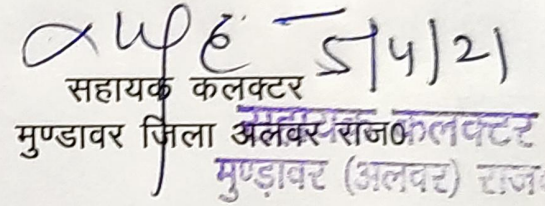 5/4/21
सहायक कलक्टर
मुण्डावर जिला अलवर राज०
सहायक कलक्टर
मुण्ड़ावर (अलवर) राज